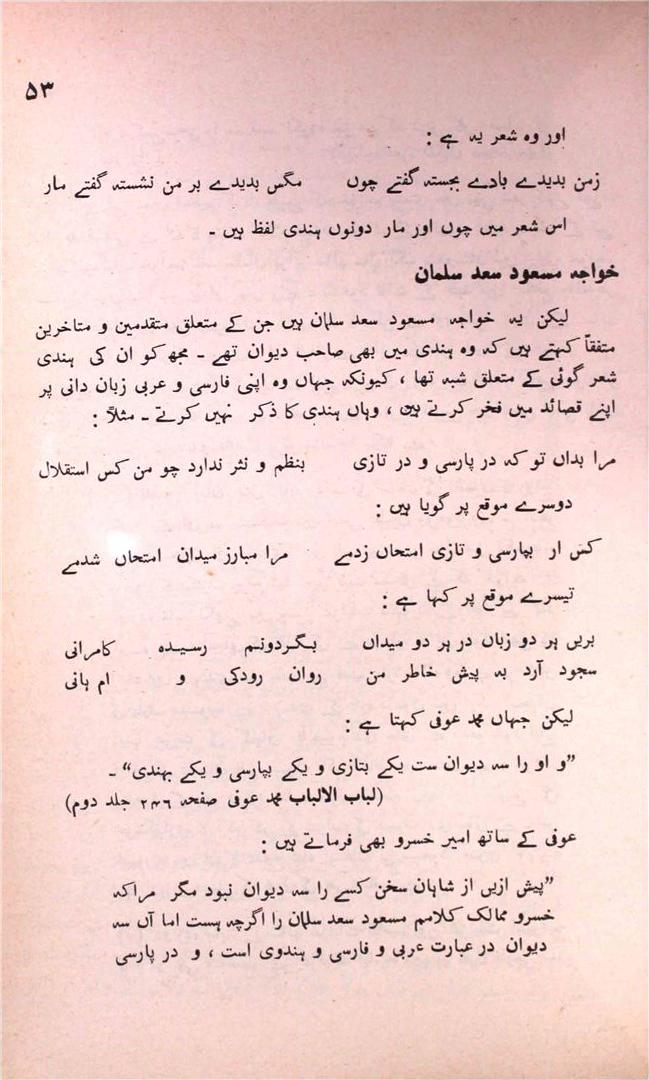 ۵۳
اور وہ شعر یہ ہے :
زمن بدیدے بادے بجستہ گفتے چوں مگس بدیدے بر من نشستہ گفتے مار
اس شعر میں چوں اور مار دونوں ہندی لفظ ہیں ۔
خواجہ مسعود سعد سلمان
لیکن یہ خواجہ مسعود سعد سلمان ہیں جن کے متعلق متقدمین و متاخرین
متفقاً کہتے ہیں کہ وہ ہندی میں بھی صاحب دیوان تھے ۔ مجھ کو ان کی ہندی
شعر گوئی کے متعلق شبہ تھا ، کیونکہ جہاں وہ اپنی فارسی و عربی زبان دانی پر
اپنے قصائد میں فخر کرتے ہیں ، وہاں ہندی کا ذکر نہیں کرتے ۔ مثلاً :
مرا بداں تو کہ در پارسی و در تازی بنظم و نثر ندارد چو من کس استقلال
دوسرے موقع پر گویا ہیں :
کس ار بپارسی و تازی امتحاں زدمے مرا مبارز میدان امتحاں شدمے
تیسرے موقع پر کہا ہے :
بریں ہر دو زباں در ہر دو میداں بگردونم رسیدہ کامرانی
سجود آرد بہ پیش خاطر من روان رودکی و ام ہانی
لیکن جہاں محمد عوفی کہتا ہے :
”و او را سہ دیوان ست یکے بتازی و یکے بپارسی و یکے بہندی“ ۔
(لباب الالباب محمد عوفی صفحہ ۲۴۶ جلد دوم)
عوفی کے ساتھ امیر خسرو بھی فرماتے ہیں :
”پیش ازیں از شاہان سخن کسے را سہ دیوان نبود مگر مراکہ
خسرو ممالک کلامم مسعود سعد سلمان را اگرچہ ہست اما آں سہ
دیوان در عبارت عربی و فارسی و ہندوی است ، و در پارسی